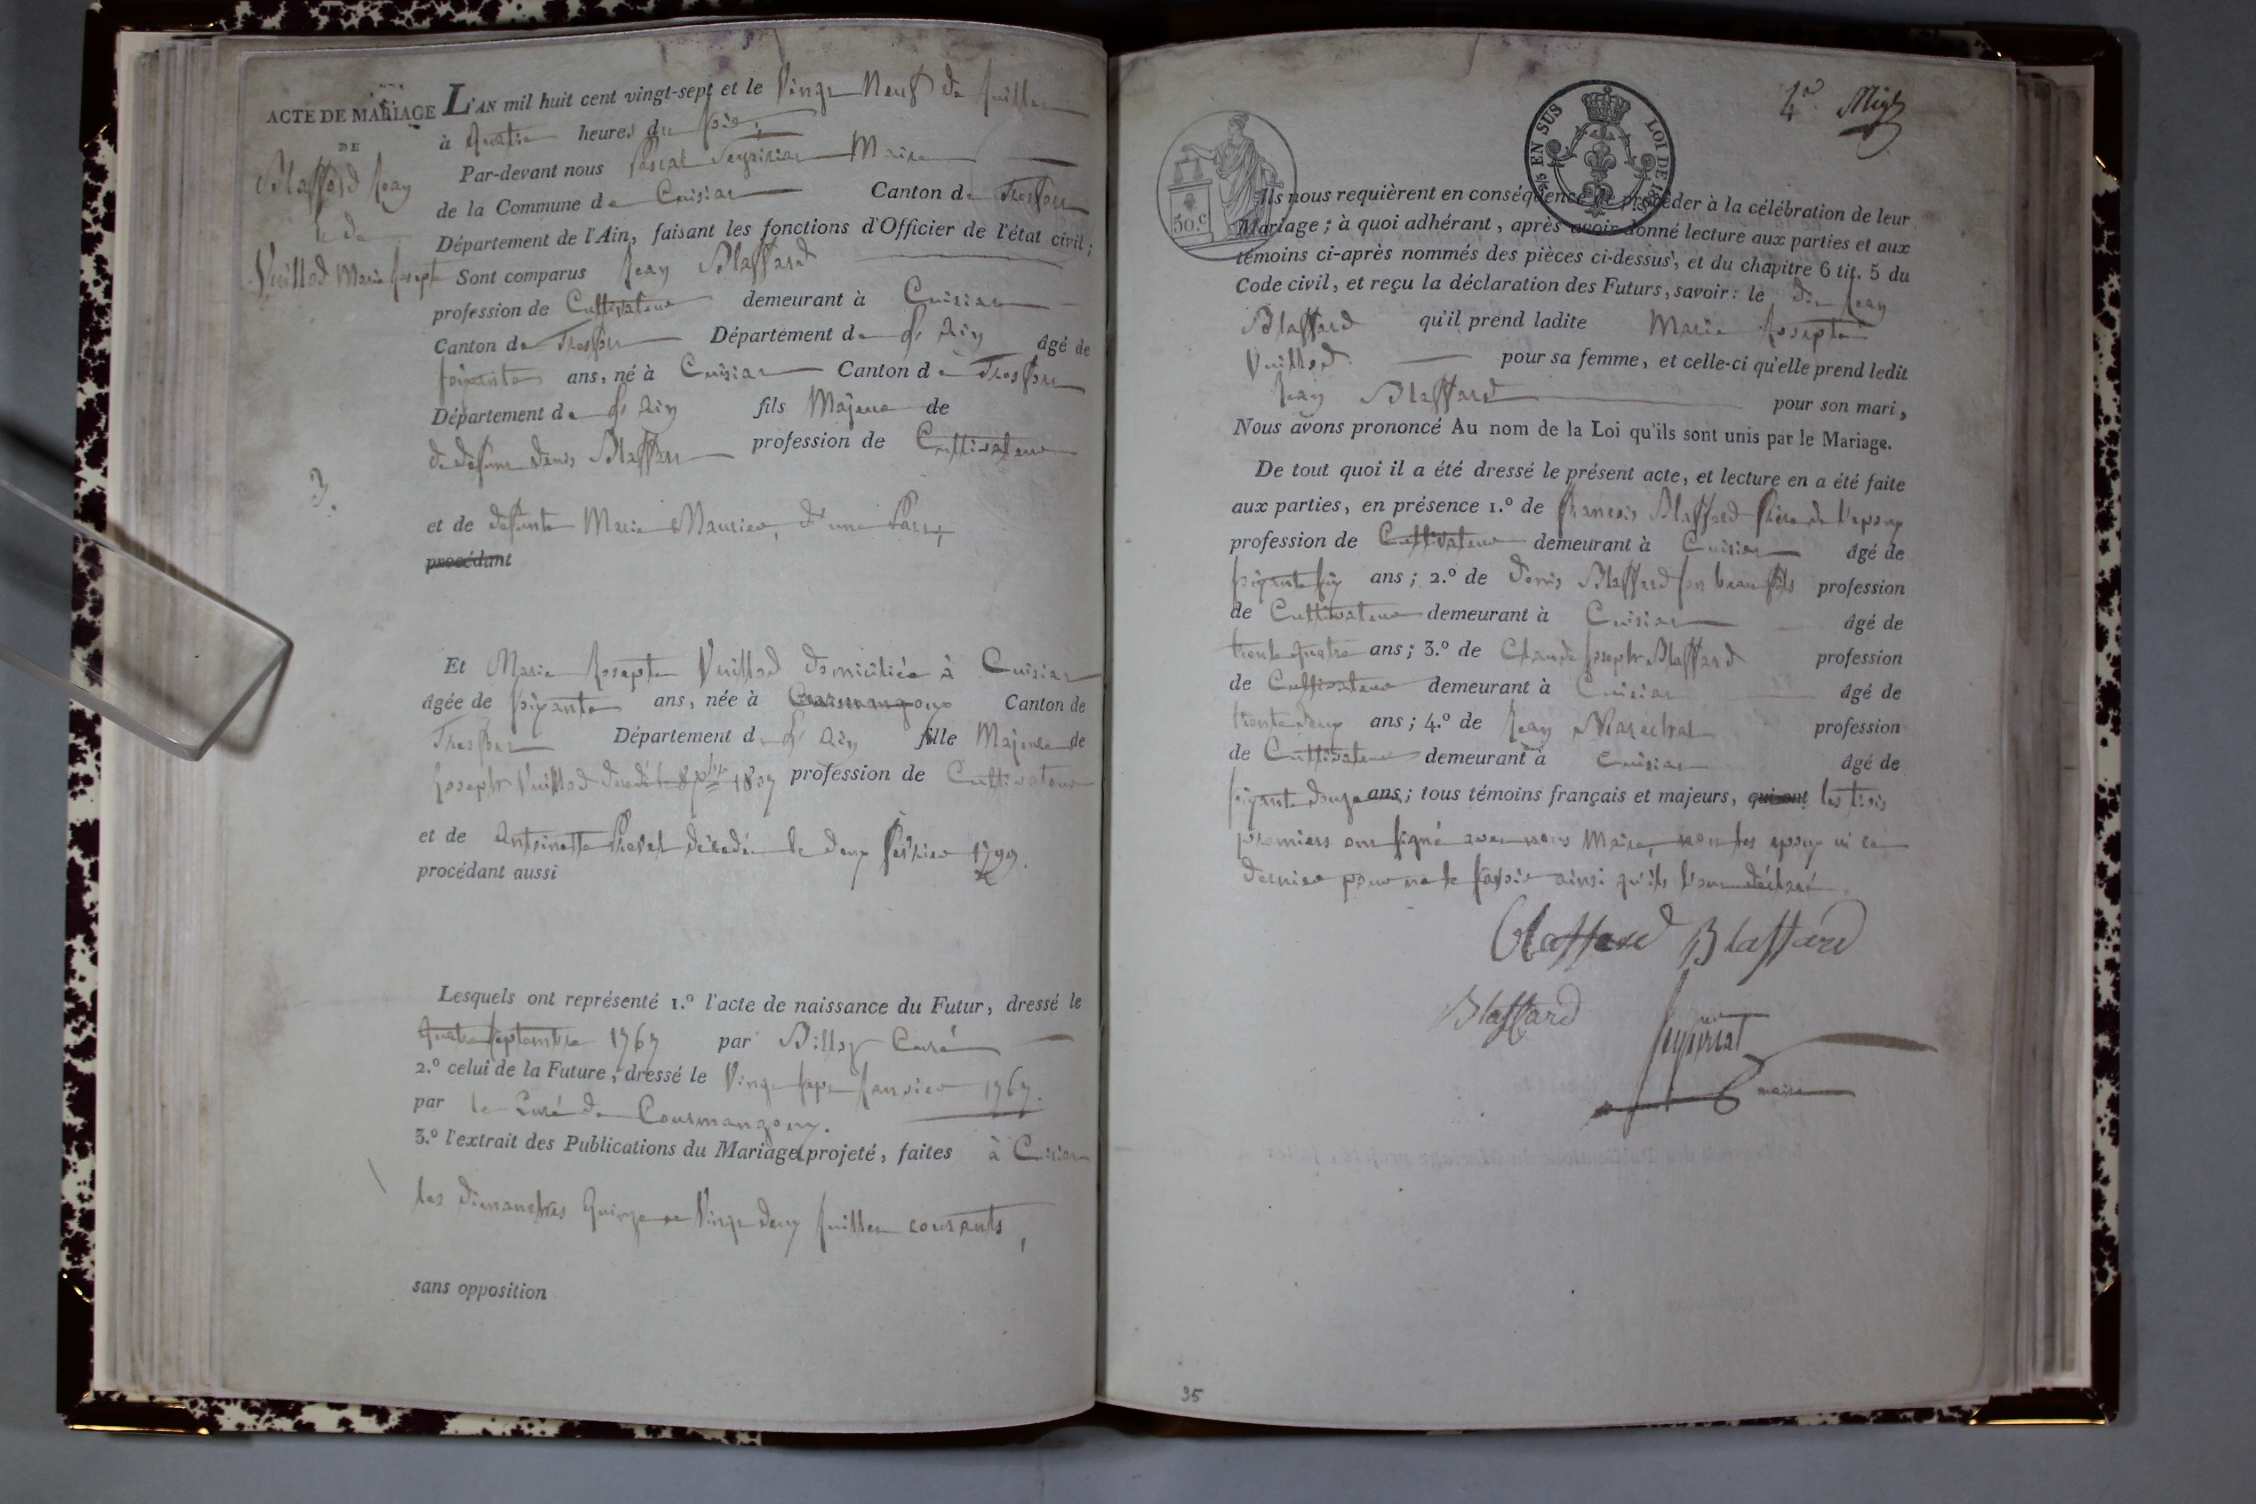 ACTE DE MARIAGE
DE
Blaffard Jean
& de
Vuillod Marie Josephte
3.
L'AN mil huit cent vingt-sept et le Vingt Neuf de Juillet
à quatre heures du soir,
Par-devant nous Pascal Maire
de la Commune de Cuisiat Canton de Treffort
Département de l'Ain, faisant les fonctions d'Officier de l'état civil;
Sont comparus Jean Blaffard
profession de Cultivateur demeurant à Cuisiat
Canton de Treffort Département de l'Ain âgé de
soixante ans, né à Cuisiat Canton de Treffort
Département de l'Ain fils Majeur de
de défunt Denis Blaffard profession de Cultivateur
et de défunte Marie Maurier, d'une Part,
procédant
Et Marie Josephte Vuillod domiciliée à Cuisiat
âgée de soixante ans, née à Courmangoux Canton de
Treffort Département de l'Ain fille Majeure de
Joseph Vuillod décédé le 8 1807 profession de Cultivateur
et de Antoinette décédée le deux Février 1799.
procédant aussi
Lesquels ont représenté 1.º l'acte de naissance du Futur, dressé le
quatre septembre 1767 par Billoz Curé
2.º celui de la Future, dressé le Vingt sept Janvier 1767.
par le Curé de Courmangoux.
3.º l'extrait des Publications du Mariage projeté, faites à Cuisiat
les dimanches Quinze et Vingt deux Juillet courants,
sans opposition
50.c
2/5 EN SUS LOI DE
Ils nous requièrent en conséquence de procéder à la célébration de leur
Mariage; à quoi adhérant, après avoir donné lecture aux parties et aux
témoins ci-après nommés des pièces ci-dessus, et du chapitre 6 tit. 5 du
Code civil, et reçu la déclaration des Futurs, savoir: le dit Jean
Blaffard qu'il prend ladite Marie Josephte
Vuillod pour sa femme, et celle-ci qu'elle prend ledit
Jean Blaffard pour son mari,
Nous avons prononcé Au nom de la Loi qu'ils sont unis par le Mariage.
De tout quoi il a été dressé le présent acte, et lecture en a été faite
aux parties, en présence 1.º de François Blaffard frère de l'époux
profession de Cultivateur demeurant à Cuisiat âgé de
soixante six ans; 2.º de Denis Blaffard son beau fils profession
de Cultivateur demeurant à Cuisiat âgé de
trente quatre ans; 3.º de Claude Joseph Blaffard profession
de Cultivateur demeurant à Cuisiat âgé de
trente deux ans; 4.º de Jean Marechal profession
de Cultivateur demeurant à Cuisiat âgé de
soixante douze ans; tous témoins français et majeurs, qui ont les trois
premiers ont signé avec nous Maire, non les époux ni ce
dernier pour ne le savoir ainsi qu'ils l'ont déclaré.
Blaffard Blaffard
Blaffard
maire
35